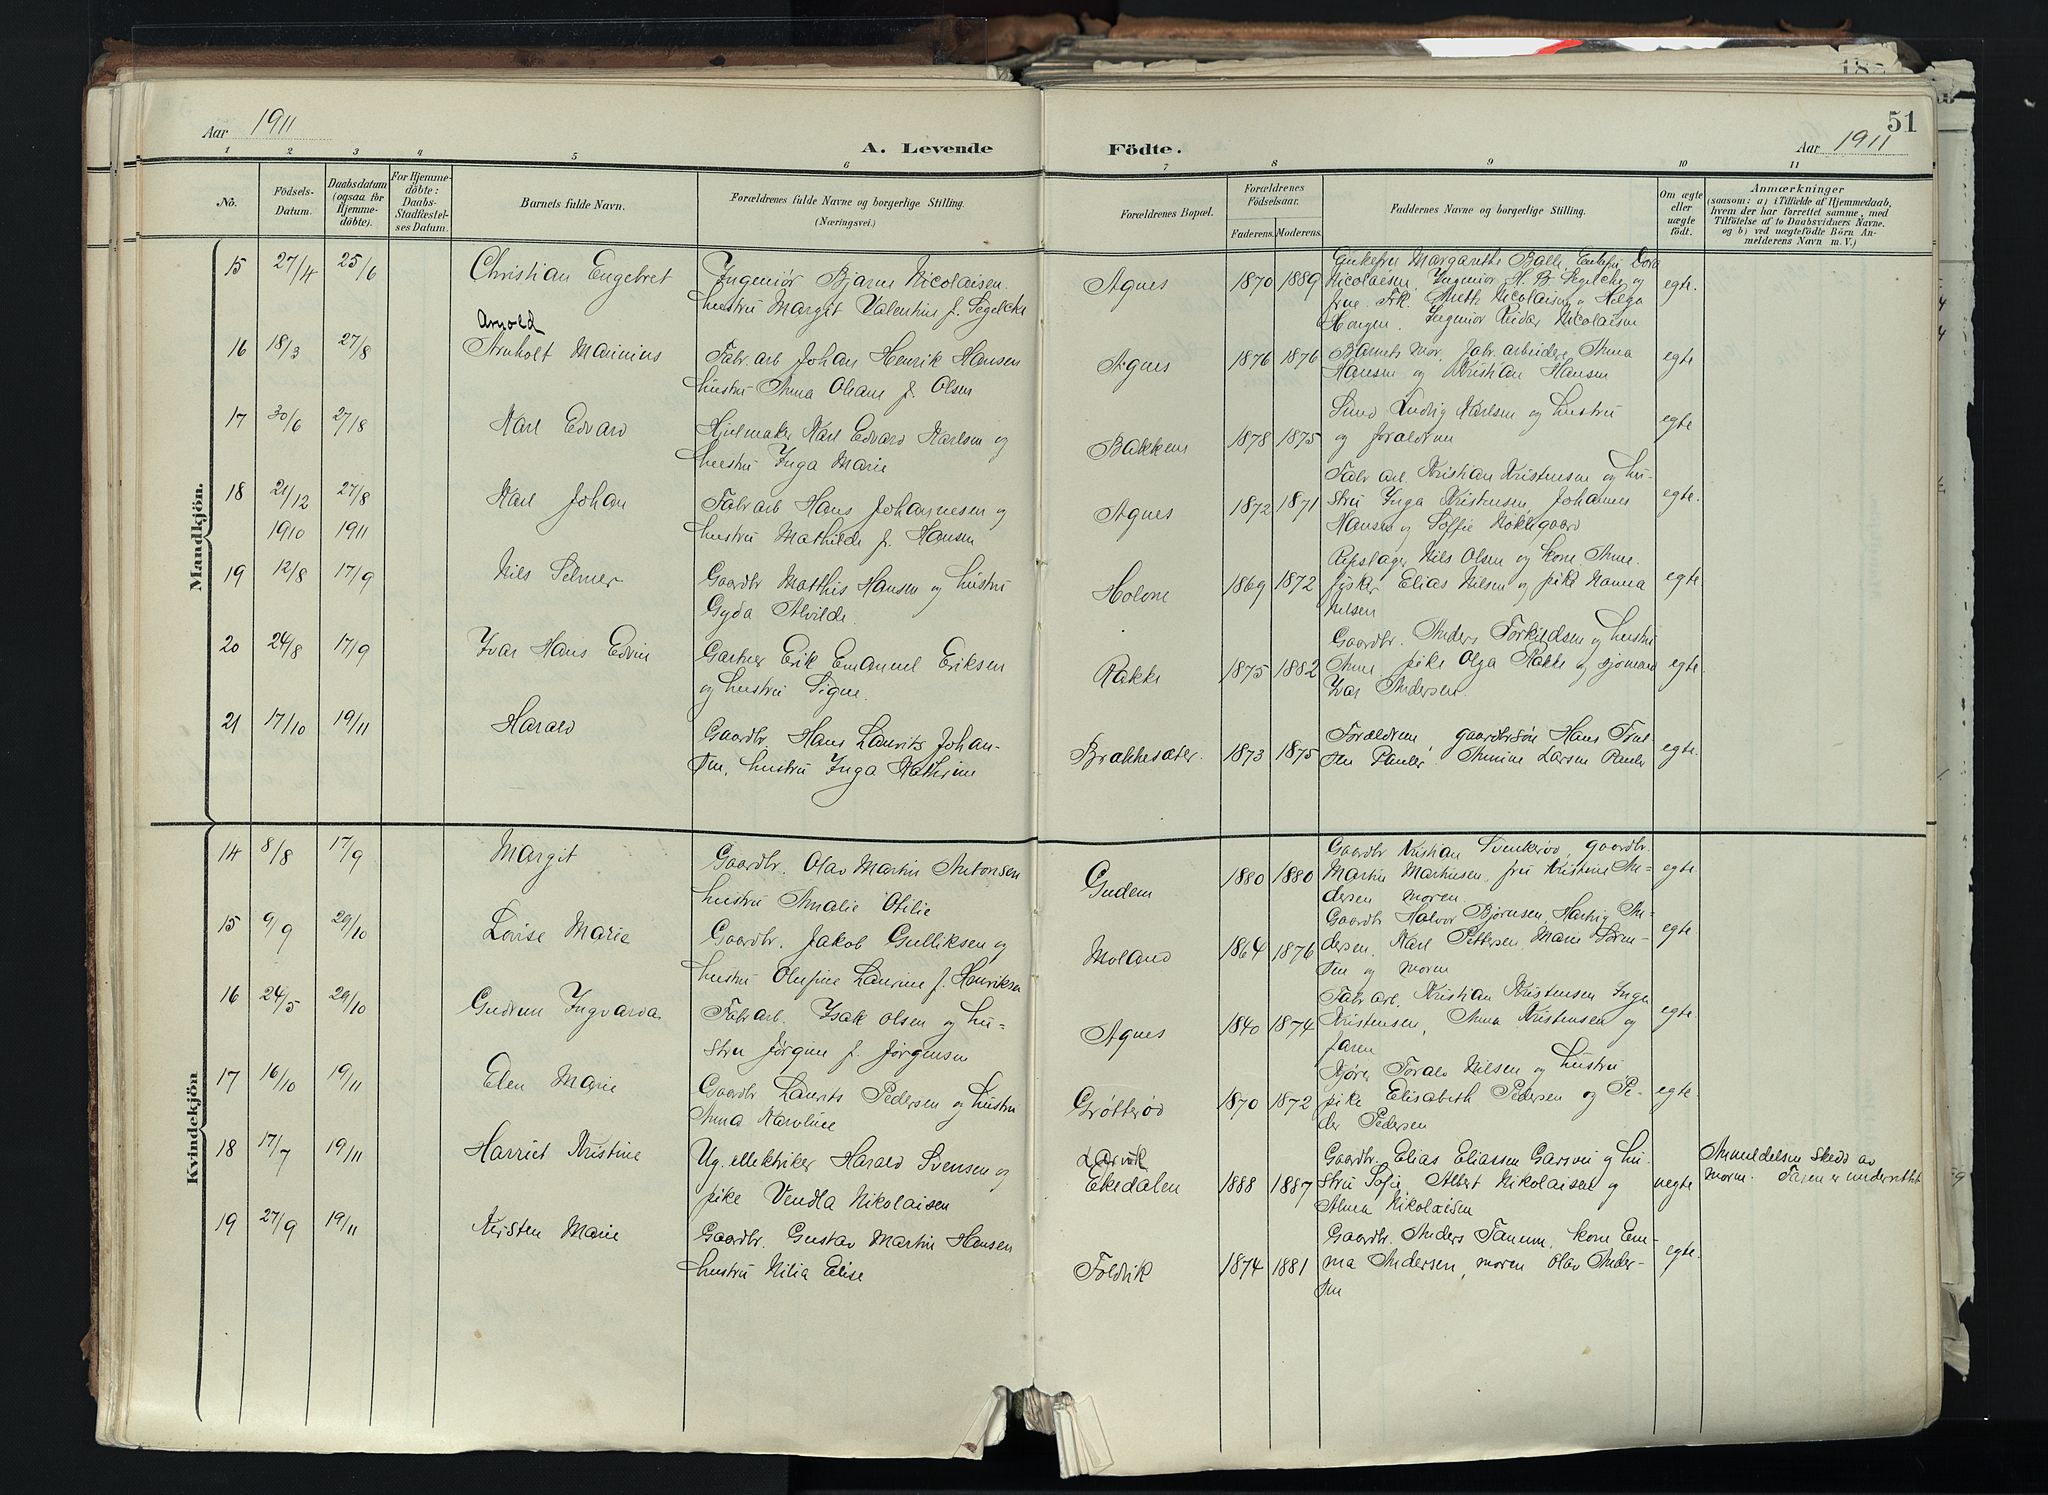 Aar 1911
A. Levende Födte.
Aar 1911
51
1 2 3 4 5 6 7 8 9 10 11
No.
Födsels-
Datum.
Daabsdatum
(ogsaa for
Hjemme-
döbte).
For Hjemme-
döbte:
Daabs-
Stadfæstel-
ses Datum.
Barnets fulde Navn.
Forældrenes fulde Navne og borgerlige Stilling.
(Næringsvei.)
Forældrenes Bopæl.
Forældrenes
Födselsaar.
Faderens. Moderens.
Faddernes Navne og borgerlige Stilling.
Om ægte
eller
uægte
födt.
Anmærkninger
(saasom: a) i Tilfælde af Hjemmedaab,
hvem der har forrettet samme, med
Tilföielse af to Daabsvidners Navne.
og b) ved uægtefödte Börn An-
melderens Navn m. V.)
Mandkjön.
15 27/4 25/6 Christian Engebret
Ingeniör Bjarne Nicolaisen
hustru Margit Valentine f. Segelcke
Agnes 1870 1889
Margarethe Balle, Enkefru Dora
Nicolaisen, Ingeniør H. B. Segelcke og
frue. Frk. Nicolaisen Helga
Ingeniør Reidar Nicolaisen
egte.
Arnold
16 18/3 27/8 Arnholt Marinius
Fabr arb Johan Henrik Hansen
hustru Anna Oleane f. Olsen
Agnes 1876 1876
Barnets Mor, fabr. arbeidere Anna
Hansen og Kristian Hansen
egte
17 30/6 27/8 Karl Edvard
Hjulmaker Karl Edvard Karlsen og
hustru Inga Marie
Bakken 1878 1875
Ludvig Karlsen og hustru
og foraldrene
egte
18 21/12 27/8 Karl Johan
1910 1911
Fabr arb Hans Johannesen og
hustru Mathilde f. Hansen
Agnes 1872 1871
Fabr arb. Kristian Kristensen og hu-
stru Inga Kristensen, Johannes
Hansen og Soffie
egte.
19 12/8 17/9 Nils Selmer
Gaardbr Matthis Hansen og hustru
Gyda Alvilde.
Holone 1869 1872
Repslager Nils Olsen og kone Anne.
fysker Elias Nilsen og pike Hanna
Nilsen
egte
20 24/8 17/9 Ivar Hans Edvin
Gartner Erik Emanuel Eriksen
og hustru Signe.
Rakke 1875 1882
Gaardbr. Anders Torkildsen og hustru
Anne, pike Olga Rakke og sjømand
Ivar Andersen.
egte.
21 17/10 19/11 Harald
Gaardbr. Hans Laurits Johan-
sen, hustru Inga Kathrine
Brækkesæter. 1873 1875
Foraldrene, gaardbrsøn Hans
Pauler. Annine Larsen Pauler
egte.
Kvindekjön
14 8/8 17/9 Margit
Gaardbr. Olav Martin Antonsen
hustru Amalie Otilie
Gudem 1880 1880
Gaardbr Kristian Svenkerød, gaardbr.
Martin Martinsen, fru Kristine An-
dersen moren.
egte.
15 9/9 29/10 Lovise Marie
Gaardbr. Jakob Gulliksen og
hustru Olufine Laurine f. Henriksen
Moland 1864 1876
Gaardbr Halvor Bjørnsen, Hartvig An-
dersen, Karl Pettersen, Marie Søren-
sen og moren
egte.
16 24/5 29/10 Gudrun Ingvarda
Fabr arb. Isak Olsen og hu-
stru Jørgine f. Jørgensen
Agnes 1840 1874
Fabr arb. Kristian Kristensen Inga
Kristensen, Anna Kristensen og
faren
egte.
17 16/10 19/11 Elen Marie
Gaardbr Laurits Pedersen og hustru
Anna Karoline
Grøtterød 1870 1872
Torald Nilsen og hustru,
pike Elisabeth Pedersen og Pe-
der Pedersen
egte.
18 17/7 19/11 Harriet Kristine
Ug. ellektriker Harald Svensen og
pike Vendla Nikolaisen
Larvik
Ekedalen 1888 1887
Gaardbr. Elias Eliassen og hu-
stru Sofie, Albert Nikolaisen og
Alma Nikolaisen
uegte
Anmeldelsen skedd av
moren. Faren er underrettet
19 27/9 19/11 Kirsten Marie
Gaardbr. Gustav Martin Hansen
hustru Milia Elise
Foldvik 1874 1881
Gaardbr. Anders Tanum, kone Em-
ma Andersen, moren Olav Ander-
sen
egte.